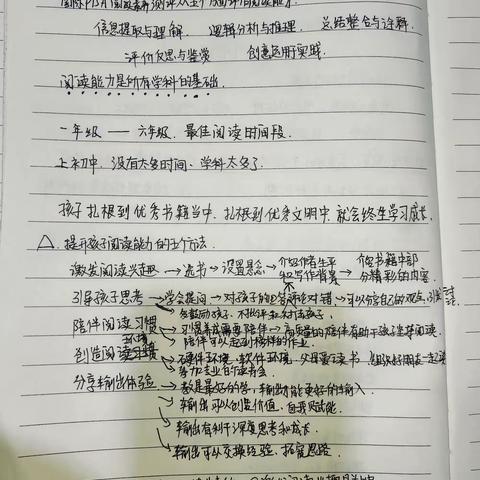 国际PISA阅读素养测评从五个方面评估阅读能力
信息提取与理解 逻辑分析与推理 总结整合与诠释
评价反思与鉴赏 创意运用实践
阅读能力是所有学科的基础.
一年级 —— 六年级. 最佳阅读时间段.
上初中, 没有太多时间、学科太多了
孩子扎根到优秀书籍当中, 扎根到优秀文明中, 就会终生学习成长.
△. 提升孩子阅读能力的五个方法.
激发阅读兴趣 → 选书 → 设置悬念 → 介绍作者生平和写作背景 → 介绍书籍中部分精彩的内容.
引导孩子思考 → 学会提问 → 对孩子的回答不评论对错 → 可以给自己的观点, 引发讨论
多鼓励孩子, 不批评和太打击孩子.
陪伴阅读习惯 → 习惯养成需要陪伴 → 高质量的陪伴有助于孩子坚持阅读.
陪伴可以起到榜样的作用
创造阅读环境 → 硬件环境, 软件环境. 父母要读书 组织好朋友一起读
参加专业的读书会
分享输出体验 → 教是最好的学, 输出才能更好的输入.
输出可以创造价值, 自我赋能.
输出有利于深度思考和成长.
输出可以交换经验、拓宽思路.